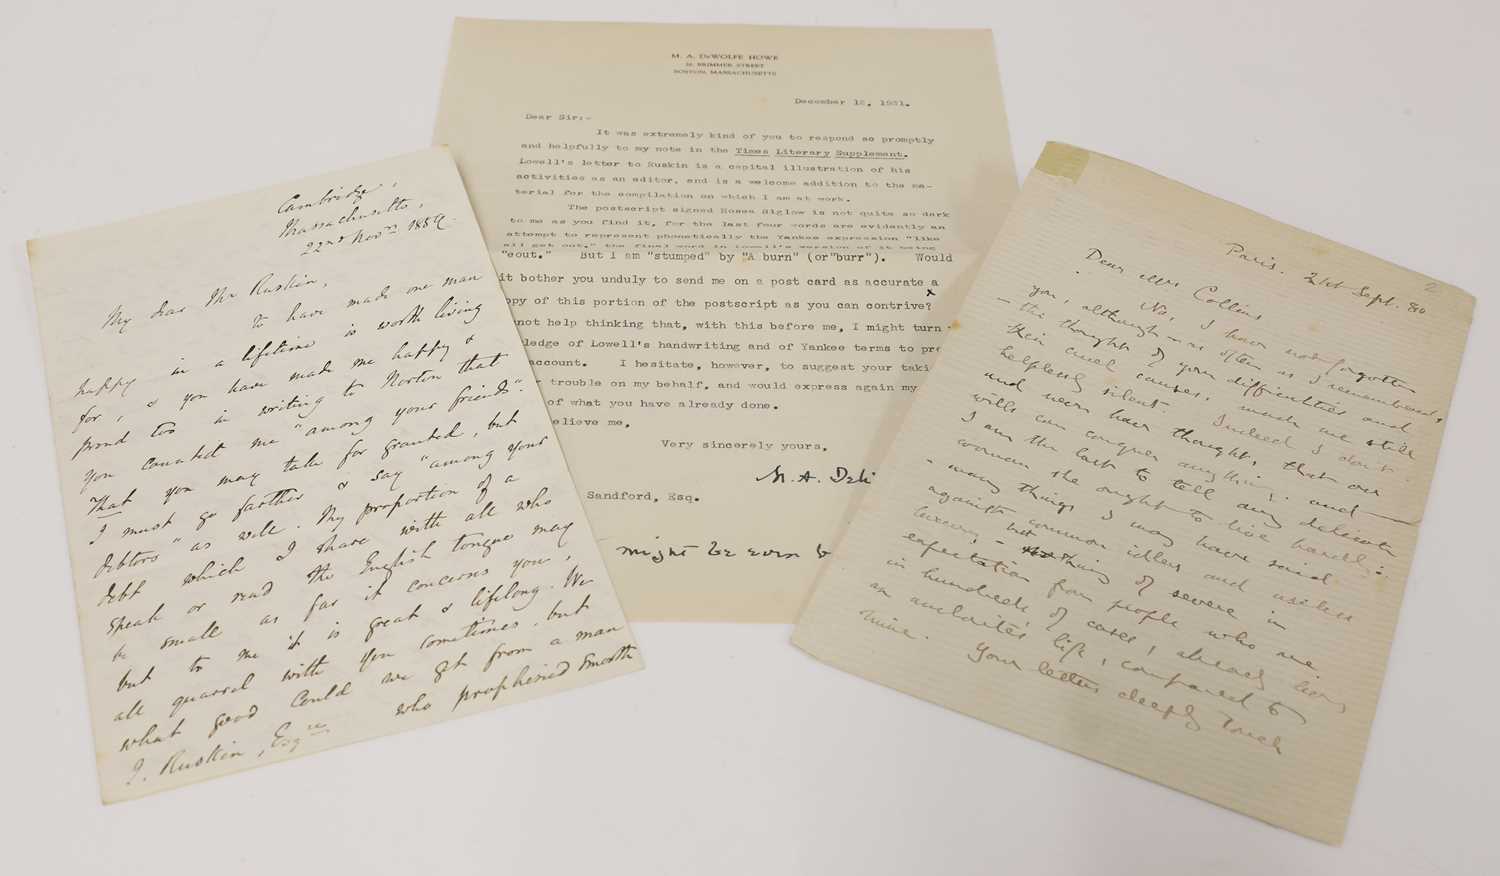 Cambridge,
Massachusetts,
22nd Novr. 1859.
My dear Mr Ruskin,
to have made one man
happy in a lifetime is worth living
for, & you have made me happy &
proud too in writing to Norton that
you counted me "among your friends."
That you may take for granted, but
I must go farther & say "among your
debtors" as well. My proportion of a
debt which I share with all who
speak or read the English tongue may
be small as far as it concerns you,
but to me it is great & lifelong. We
all quarrel with you sometimes, but
what good could we get from a man
who prophesied smooth
J. Ruskin, Esqre
M. A. DeWOLFE HOWE
BRIMMER STREET
BOSTON, MASSACHUSETTS
December 12, 1931.
Dear Sir:-
It was extremely kind of you to respond so promptly
and helpfully to my note in the Times Literary Supplement.
Lowell's letter to Ruskin is a capital illustration of his
activities as an editor, and is a welcome addition to the ma-
terial for the compilation on which I am at work.
The postscript signed Hosea Biglow is not quite so dark
to me as you find it, for the last four words are evidently an
attempt to represent phonetically the Yankee expression "like
all get out," the final word in Lowell's version of it being
"eout." But I am "stumped" by "A burn" (or"burr"). Would
it bother you unduly to send me on a post card as accurate a
x
opy of this portion of the postscript as you can contrive?
not help thinking that, with this before me, I might turn
ledge of Lowell's handwriting and of Yankee terms to pro
account. I hesitate, however, to suggest your taki
trouble on my behalf, and would express again my
of what you have already done.
elieve me,
Very sincerely yours,
M. A. DeW
Sandford, Esq.
might be even b
2
Paris. 21st Sept. 80
Dear Mr Collins
No, I have not forgotten
you, although - as often as I remembered,
- the thought of your difficulties and
their cruel causes, made me still
helplessly silent. Indeed I don't
and never have thought, that our
wills can conquer anything: and -
I am the last to tell any delicate
woman she ought to live hardly:
- many things I may have said
against common idlers and useless
luxury, - but nothing of severe in
expectation from people who are
in hundreds of cases, already living
an anchorite's life, compared to
mine.
Your letters deeply touch